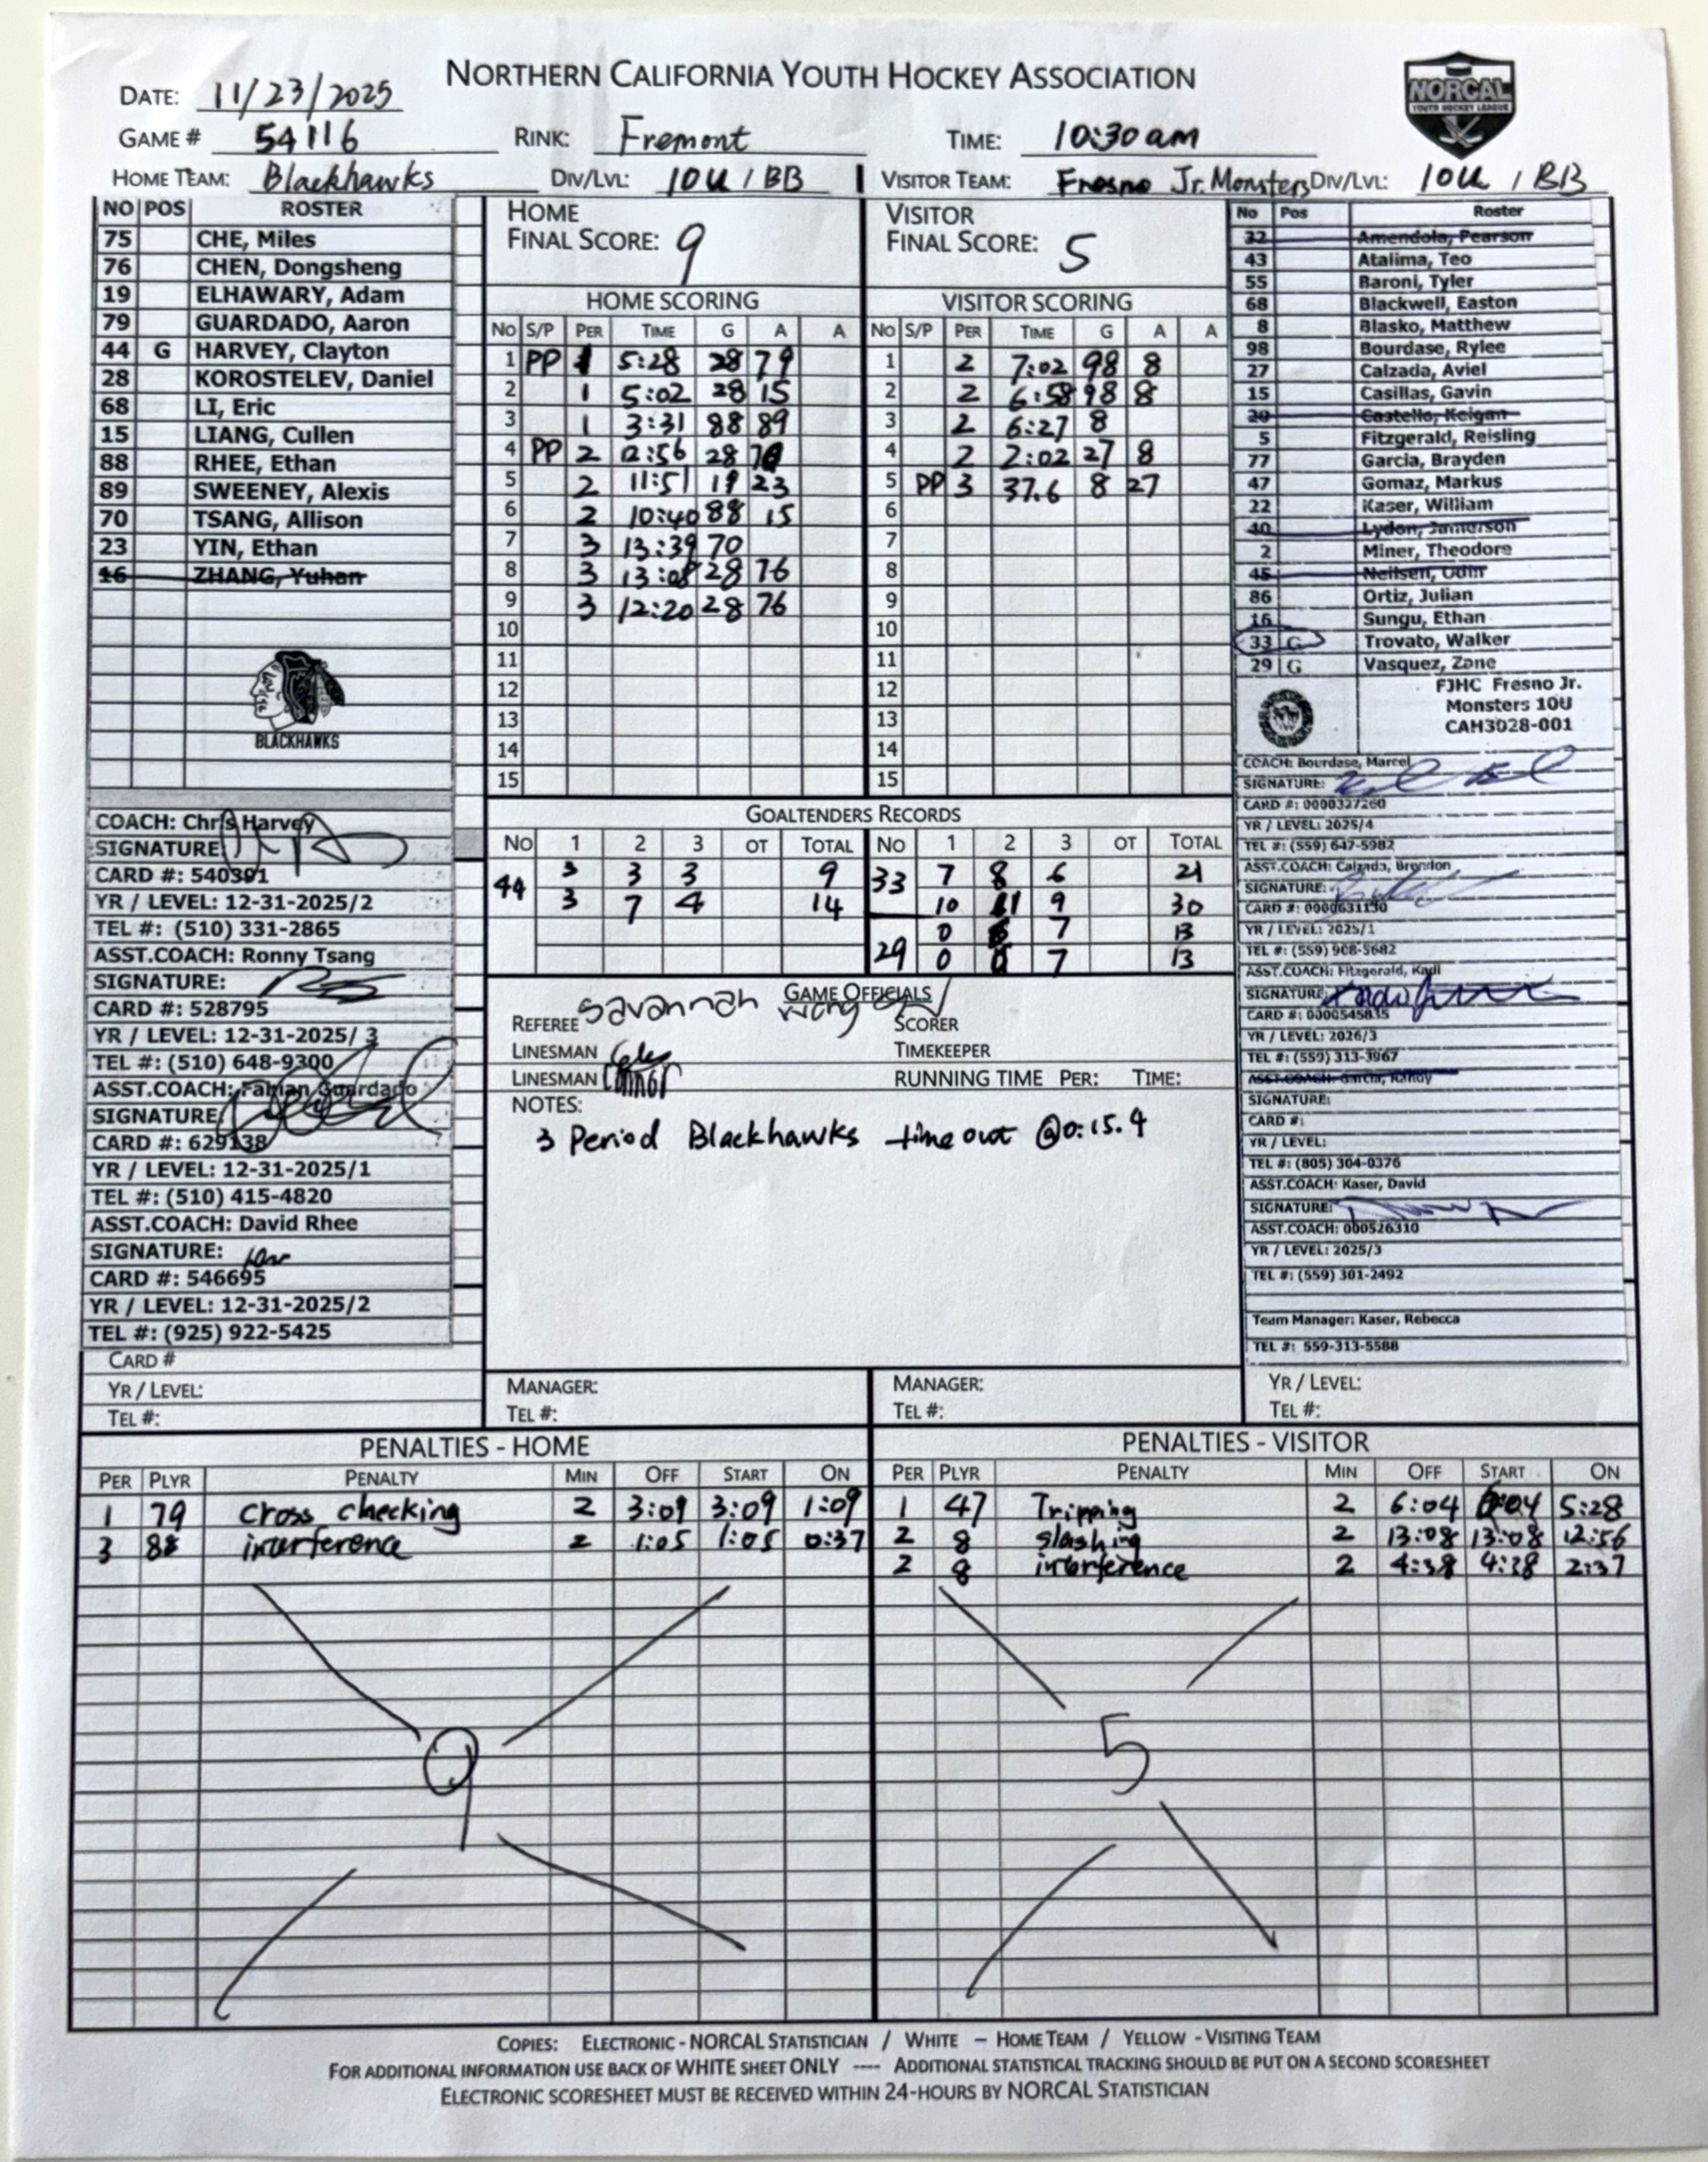 NORTHERN CALIFORNIA YOUTH HOCKEY ASSOCIATION
NORCAL
YOUTH HOCKEY LEAGUE
DATE: 11/23/2025
GAME # 54116 RINK: Fremont TIME: 10:30am
HOME TEAM: Blackhawks DIV/LVL: 10U / BB VISITOR TEAM: Fresno Jr. Monsters DIV/LVL: 10U / BB
NO POS ROSTER
75 CHE, Miles
76 CHEN, Dongsheng
19 ELHAWARY, Adam
79 GUARDADO, Aaron
44 G HARVEY, Clayton
28 KOROSTELEV, Daniel
68 LI, Eric
15 LIANG, Cullen
88 RHEE, Ethan
89 SWEENEY, Alexis
70 TSANG, Allison
23 YIN, Ethan
16 ZHANG, Yuhan
BLACKHAWKS
COACH: Chris Harvey
SIGNATURE:
CARD #: 540391
YR / LEVEL: 12-31-2025/2
TEL #: (510) 331-2865
ASST.COACH: Ronny Tsang
SIGNATURE:
CARD #: 528795
YR / LEVEL: 12-31-2025/ 3
TEL #: (510) 648-9300
ASST.COACH: Fabian Guardado
SIGNATURE:
CARD #: 629138
YR / LEVEL: 12-31-2025/1
TEL #: (510) 415-4820
ASST.COACH: David Rhee
SIGNATURE:
CARD #: 546695
YR / LEVEL: 12-31-2025/2
TEL #: (925) 922-5425
CARD #
YR / LEVEL:
TEL #:
HOME
FINAL SCORE: 9
HOME SCORING
NO S/P PER TIME G A A
1 PP 1 5:28 28 79
2 1 5:02 28 15
3 1 3:31 88 89
4 PP 2 12:56 28
5 2 11:51 19 23
6 2 10:40 88 15
7 3 13:39 70
8 3 13:08 28 76
9 3 12:20 28 76
10
11
12
13
14
15
VISITOR
FINAL SCORE: 5
VISITOR SCORING
NO S/P PER TIME G A A
1 2 7:02 98 8
2 2 6:58 98 8
3 2 6:27 8
4 2 2:02 27 8
5 PP 3 37.6 8 27
6
7
8
9
10
11
12
13
14
15
GOALTENDERS RECORDS
NO 1 2 3 OT TOTAL NO 1 2 3 OT TOTAL
44 3 3 3 9 33 7 8 6 21
3 7 4 14 10 11 9 30
0 7 13
29 0 7 13
GAME OFFICIALS
REFEREE Savannah Wong SCORER
LINESMAN TIMEKEEPER
LINESMAN Connor RUNNING TIME PER: TIME:
NOTES:
3 Period Blackhawks time out @0:15.4
MANAGER:
TEL #:
MANAGER:
TEL #:
No Pos Roster
32 Amendola, Pearson
43 Atalima, Teo
55 Baroni, Tyler
68 Blackwell, Easton
8 Blasko, Matthew
98 Bourdase, Rylee
27 Calzada, Aviel
15 Casillas, Gavin
20 Castello, Keigan
5 Fitzgerald, Reisling
77 Garcia, Brayden
47 Gomaz, Markus
22 Kaser, William
40 Lydon, Jamerson
2 Miner, Theodore
45 Neilsen, Odin
86 Ortiz, Julian
16 Sungu, Ethan
33 G Trovato, Walker
29 G Vasquez, Zane
FJHC Fresno Jr.
Monsters 10U
CAH3028-001
COACH: Bourdase, Marcel
SIGNATURE:
CARD #: 0000327260
YR / LEVEL: 2025/4
TEL #: (559) 647-5982
ASST.COACH: Calzada, Brendon
SIGNATURE:
CARD #: 0000631130
YR / LEVEL: 2025/1
TEL #: (559) 908-5682
ASST.COACH: Fitzgerald, Kadi
SIGNATURE:
CARD #: 0000545835
YR / LEVEL: 2026/3
TEL #: (559) 313-3967
ASST.COACH: Garcia, Randy
SIGNATURE:
CARD #:
YR / LEVEL:
TEL #: (805) 304-0376
ASST.COACH: Kaser, David
SIGNATURE:
ASST.COACH: 000526310
YR / LEVEL: 2025/3
TEL #: (559) 301-2492
Team Manager: Kaser, Rebecca
TEL #: 559-313-5588
YR / LEVEL:
TEL #:
PENALTIES - HOME
PER PLYR PENALTY MIN OFF START ON
1 79 Cross checking 2 3:09 3:09 1:09
3 88 interference 2 1:05 1:05 0:37
9
PENALTIES - VISITOR
PER PLYR PENALTY MIN OFF START ON
1 47 Tripping 2 6:04 6:04 5:28
2 8 slashing 2 13:08 13:08 12:56
2 8 interference 2 4:38 4:38 2:37
5
COPIES: ELECTRONIC - NORCAL STATISTICIAN / WHITE – HOME TEAM / YELLOW - VISITING TEAM
FOR ADDITIONAL INFORMATION USE BACK OF WHITE SHEET ONLY ---- ADDITIONAL STATISTICAL TRACKING SHOULD BE PUT ON A SECOND SCORESHEET
ELECTRONIC SCORESHEET MUST BE RECEIVED WITHIN 24-HOURS BY NORCAL STATISTICIAN